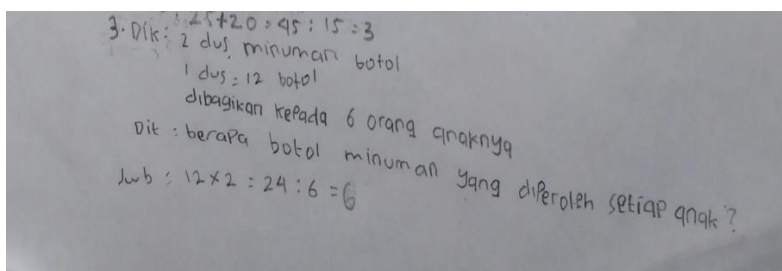 25+20 = 45 : 15 = 3
3. Dik : 2 dus minuman botol
1 dus = 12 botol
dibagikan kepada 6 orang anaknya
Dit : berapa botol minuman yang diperoleh setiap anak ?
Jwb : 12 x 2 = 24 : 6 = 6